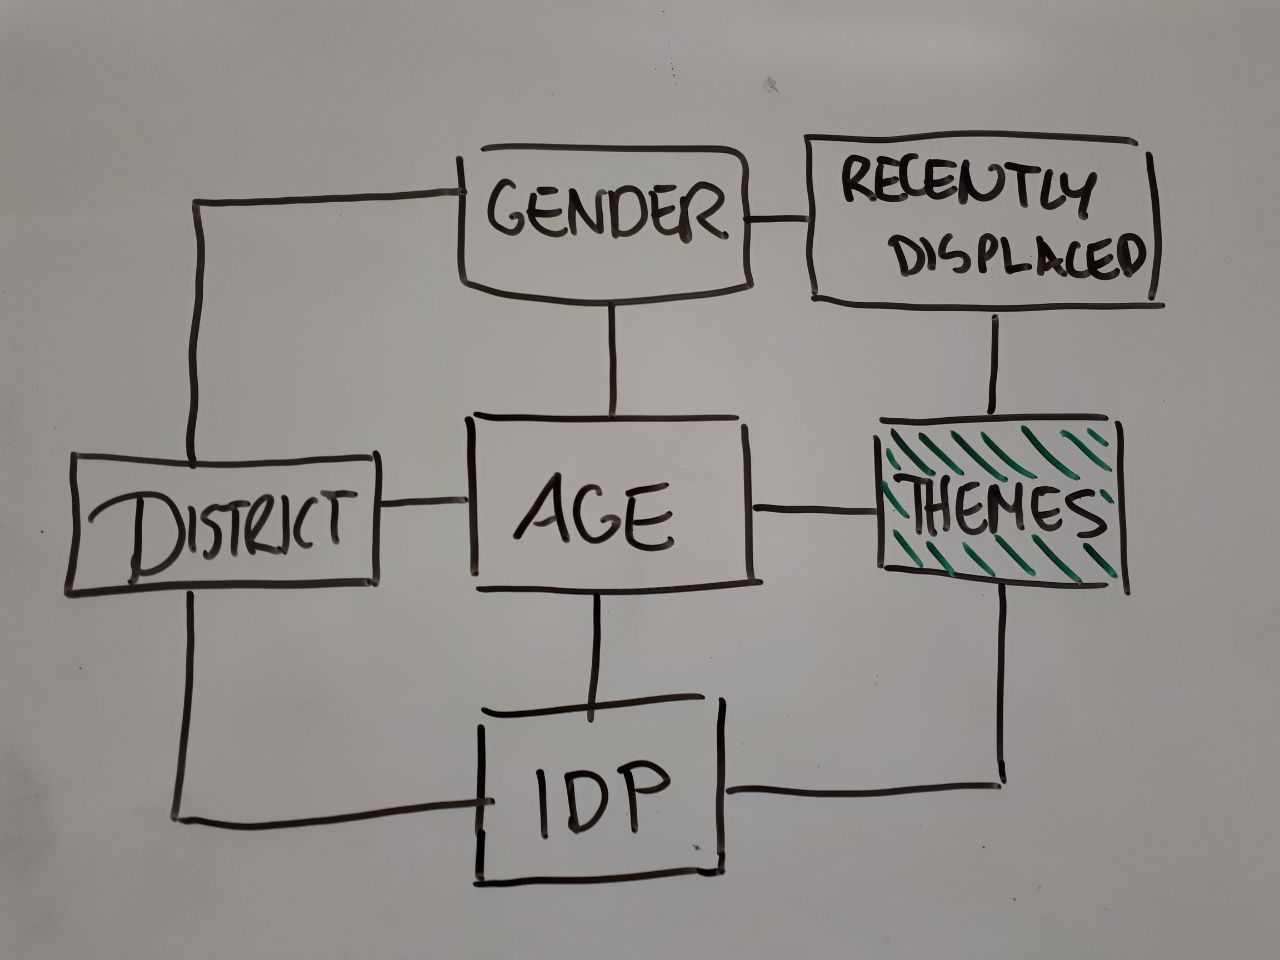 GENDER
RECENTLY
DISPLACED
DISTRICT
AGE
THEMES
IDP